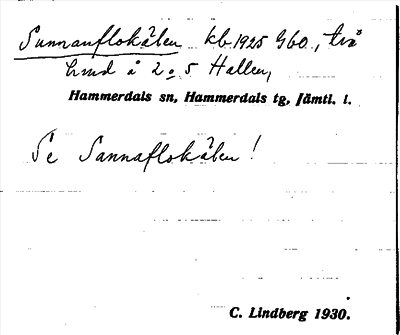 Sunnanflokälen kb 1925 960., två
hmd å 2 o 5 Hallen,
Hammerdals sn, Hammerdals tg, Jämtl. l.
Se Sannaflokälen!
C. Lindberg 1930.